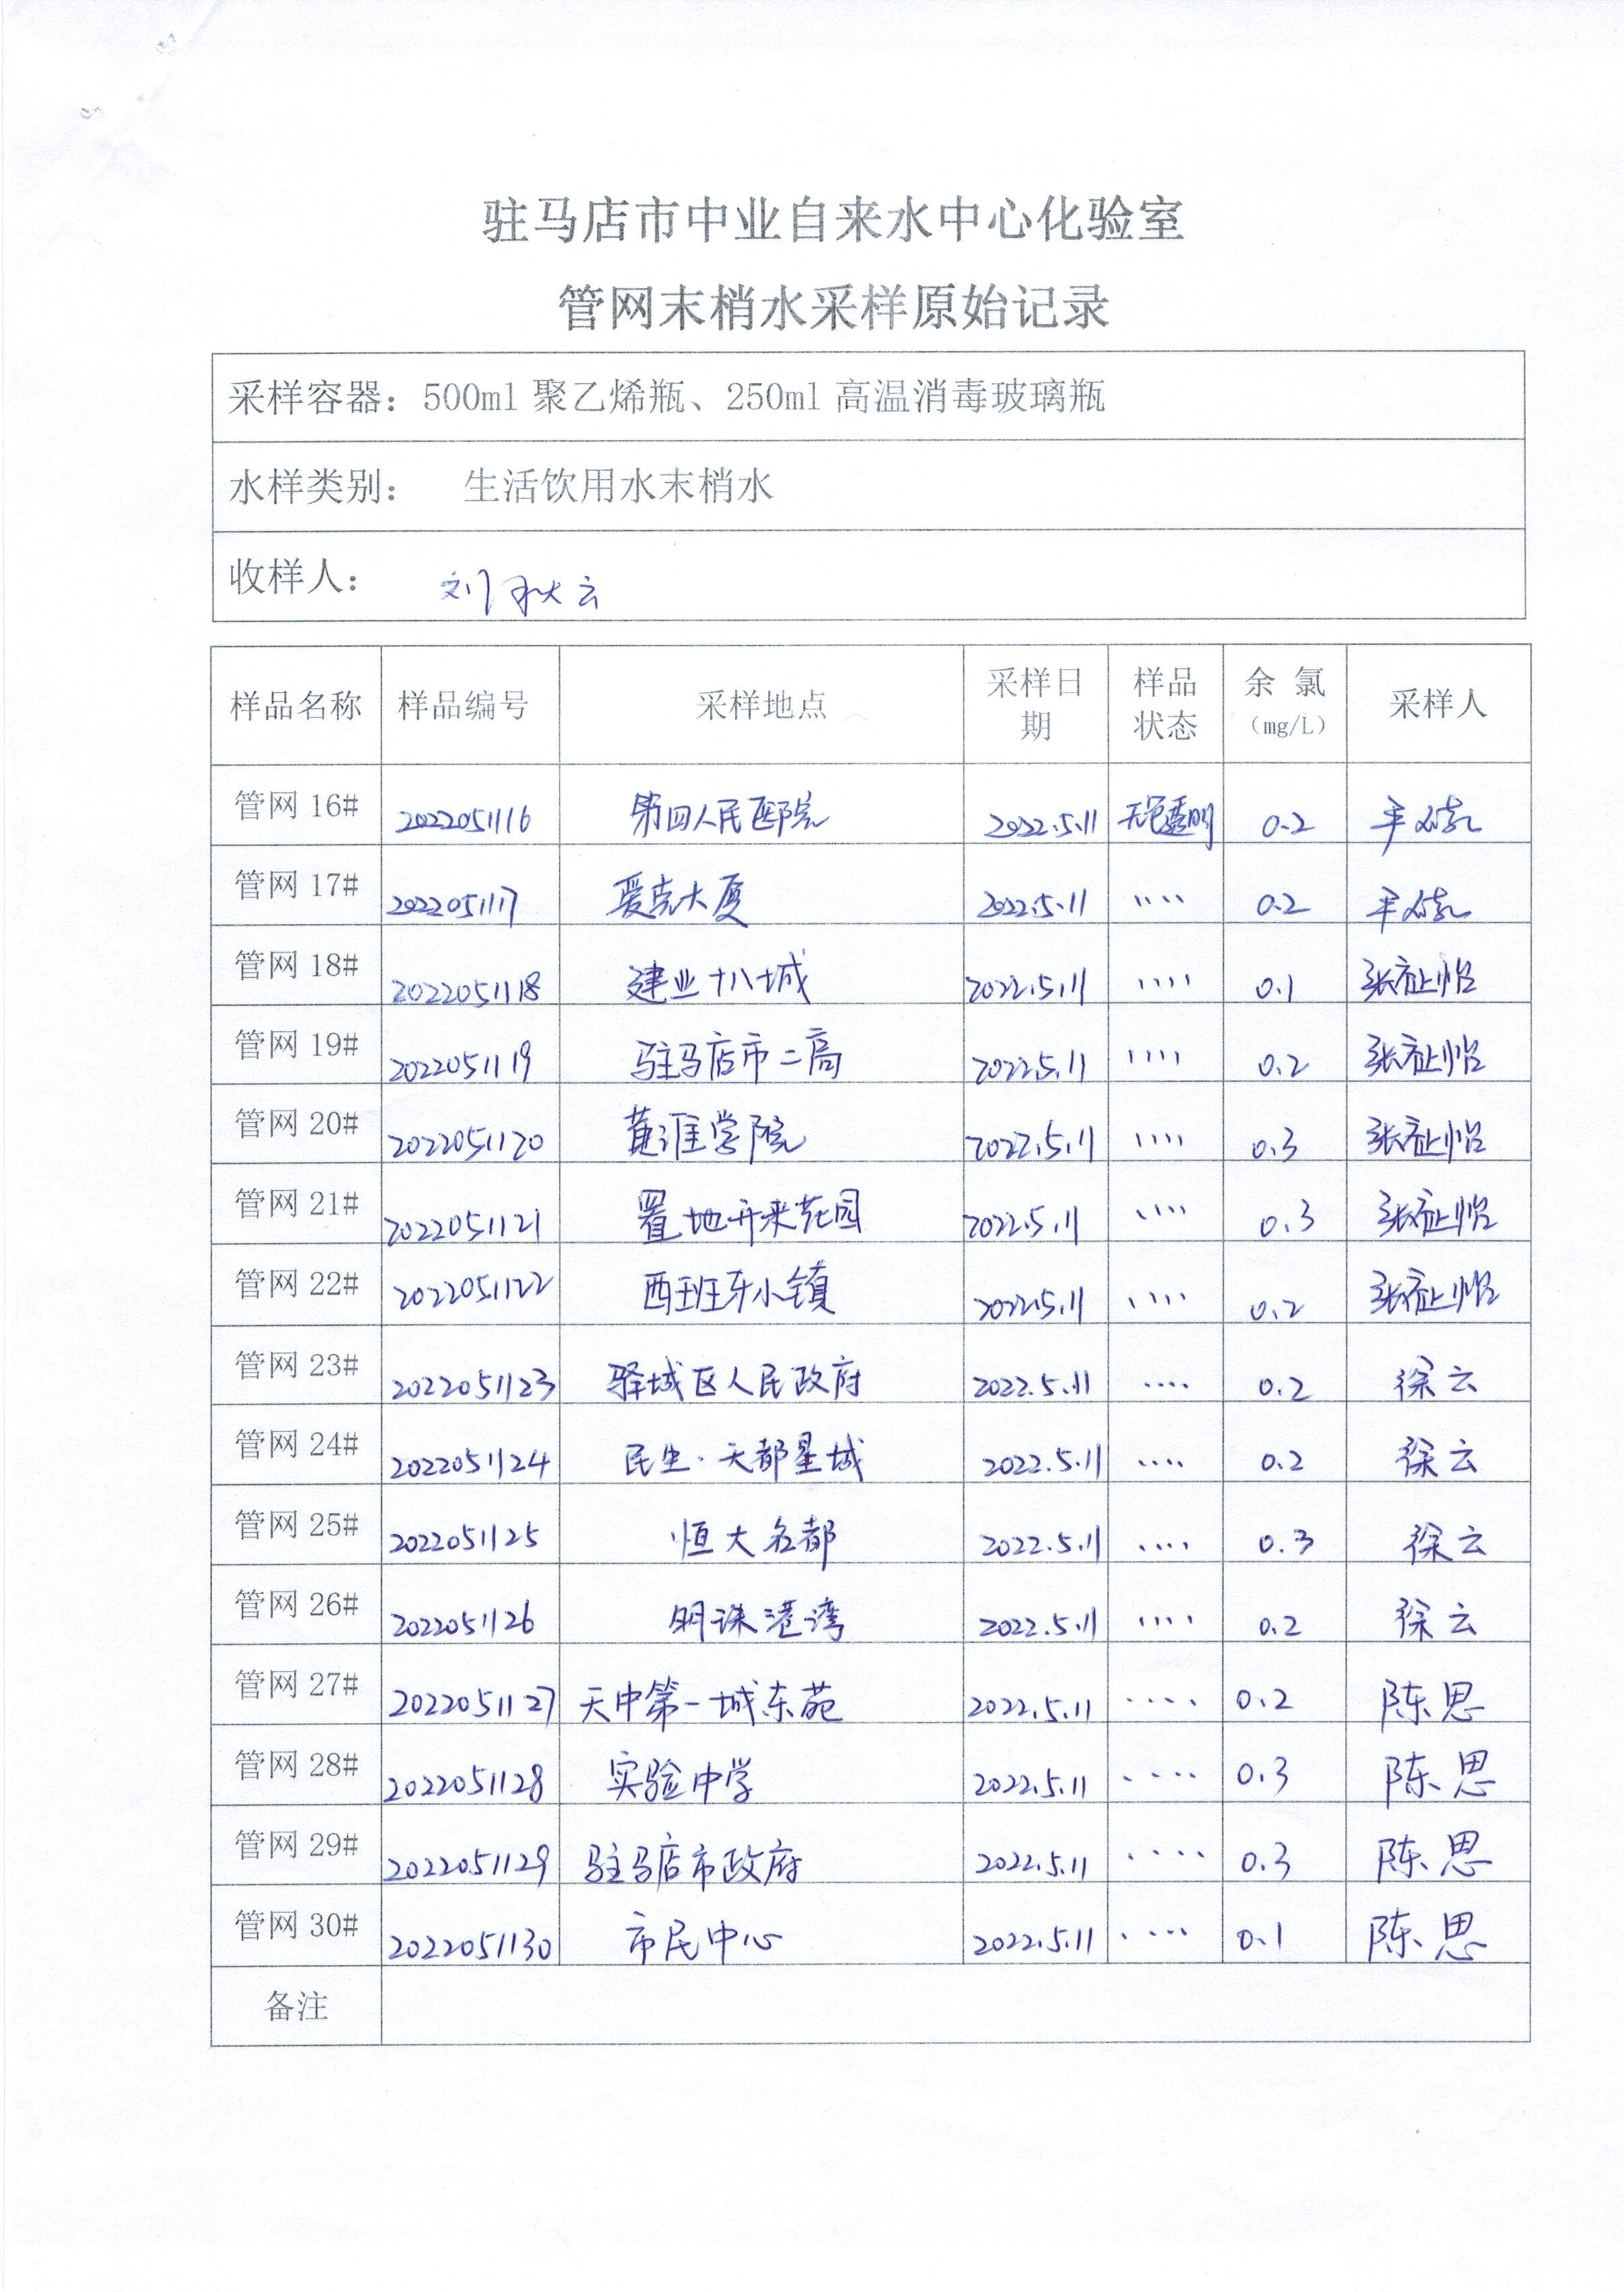 驻马店市中业自来水中心化验室
管网末梢水采样原始记录
采样容器：500ml 聚乙烯瓶、250ml 高温消毒玻璃瓶
水样类别： 生活饮用水末梢水
收样人： 刘秋云
样品名称 样品编号 采样地点 采样日期 样品状态 余 氯（mg/L） 采样人
管网 16# 2022051116 第四人民医院 2022.5.11 无色透明 0.2
管网 17# 2022051117 爱克大厦 2022.5.11 〃〃 0.2
管网 18# 2022051118 建业十八城 2022.5.11 〃〃 0.1 张祉怡
管网 19# 2022051119 驻马店市二高 2022.5.11 〃〃 0.2 张祉怡
管网 20# 2022051120 黄淮学院 2022.5.11 〃〃 0.3 张祉怡
管网 21# 2022051121 置地开来花园 2022.5.11 〃〃 0.3 张祉怡
管网 22# 2022051122 西班牙小镇 2022.5.11 〃〃 0.2 张祉怡
管网 23# 2022051123 驿城区人民政府 2022.5.11 〃〃 0.2 徐云
管网 24# 2022051124 民生·天都星城 2022.5.11 〃〃 0.2 徐云
管网 25# 2022051125 恒大名都 2022.5.11 〃〃 0.3 徐云
管网 26# 2022051126 明珠港湾 2022.5.11 〃〃 0.2 徐云
管网 27# 2022051127 天中第一城东苑 2022.5.11 〃〃 0.2 陈思
管网 28# 2022051128 实验中学 2022.5.11 〃〃 0.3 陈思
管网 29# 2022051129 驻马店市政府 2022.5.11 〃〃 0.3 陈思
管网 30# 2022051130 市民中心 2022.5.11 〃〃 0.1 陈思
备注